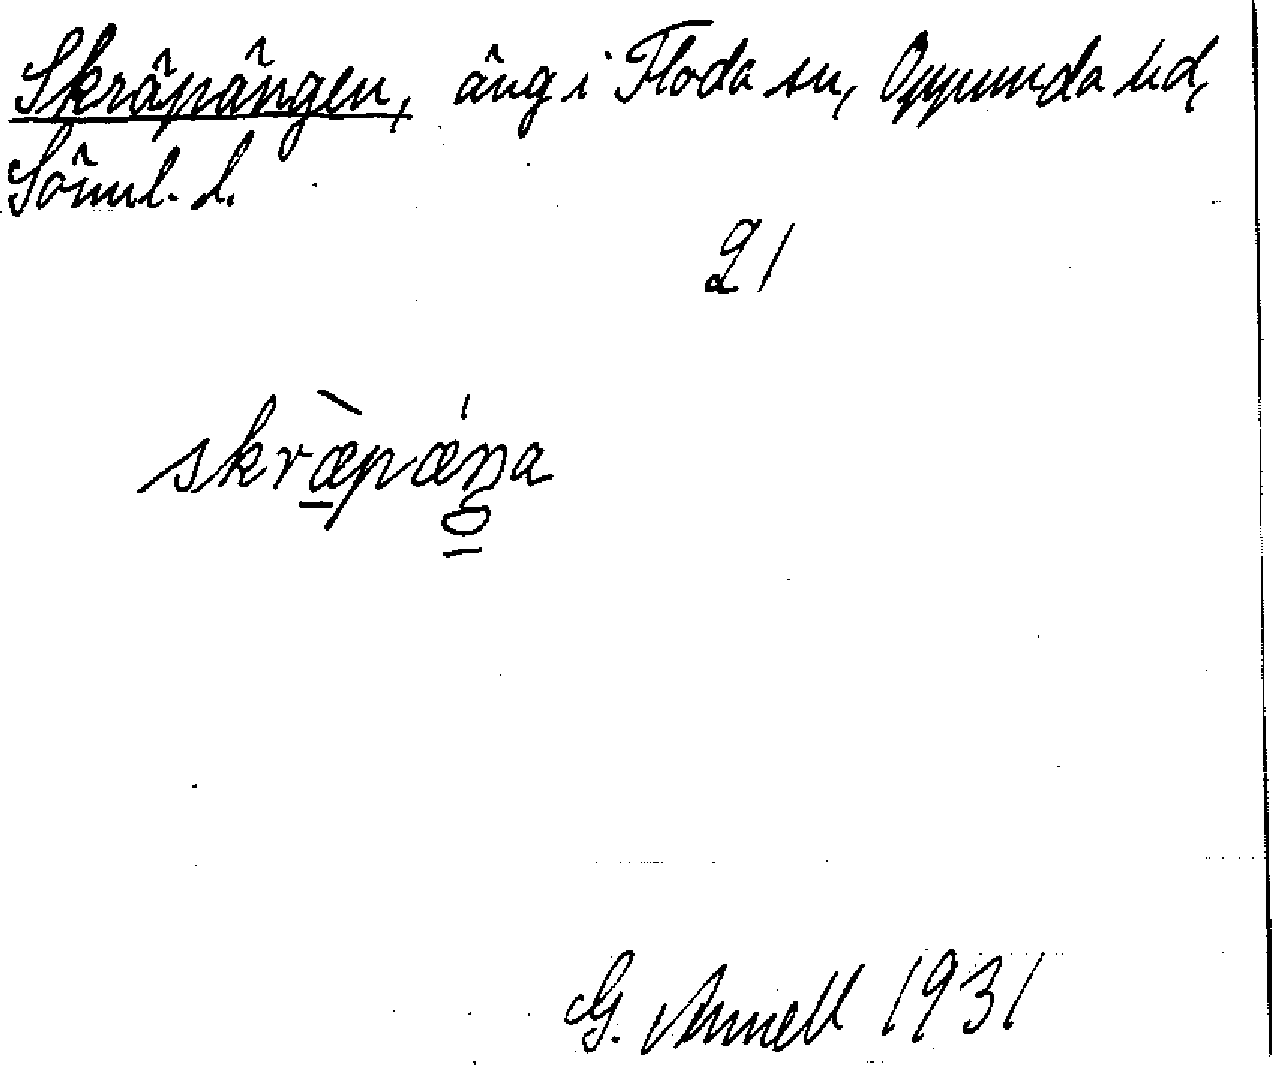 Skräpängen, äng i Floda sn, Oppunda hd,
Söml. l.
21
skræ̀pæ̀ŋa
G. Annell 1931